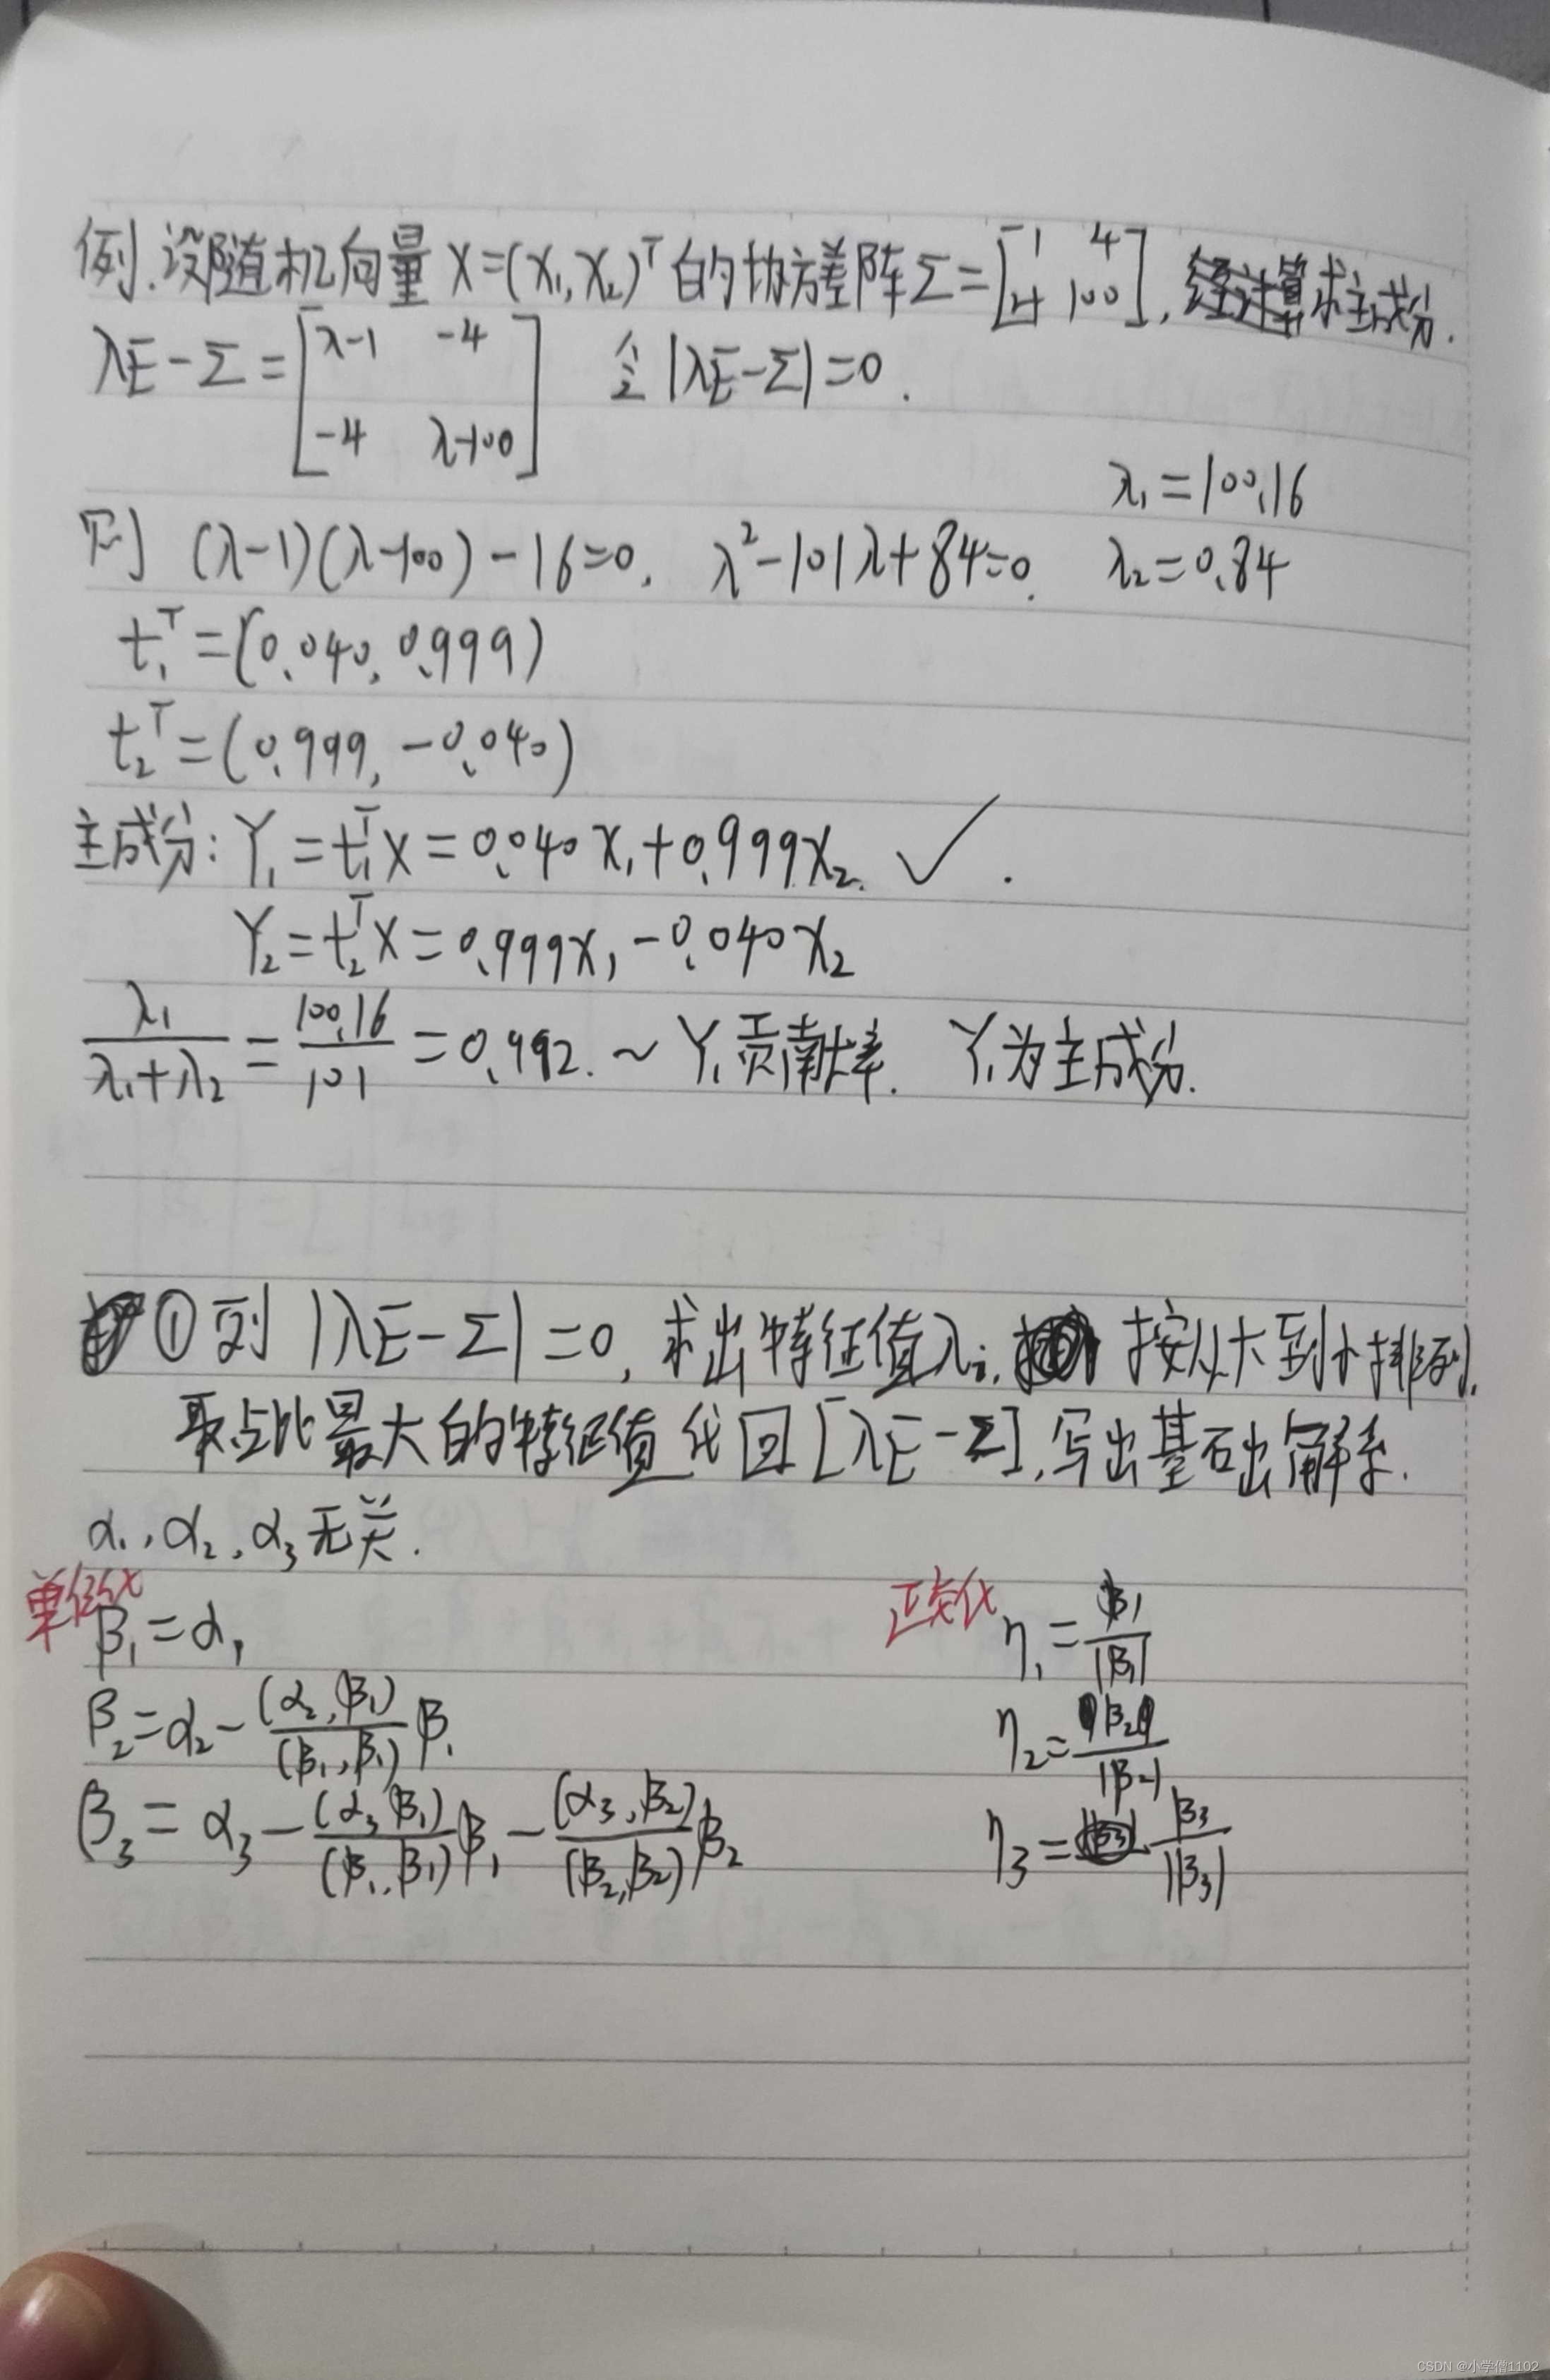 例.设随机向量 X=(X₁,X₂)ᵀ 的协方差阵Σ=[1 4; 4 100], 经计算求主成分.
λE-Σ=[λ-1 -4; -4 λ-100] 令|λE-Σ|=0.
λ₁=100.16
则 (λ-1)(λ-100)-16=0, λ²-101λ+84=0. λ₂=0.84
t₁ᵀ=(0.040, 0.999)
t₂ᵀ=(0.999, -0.040)
主成分: Y₁=t₁ᵀX=0.040X₁+0.999X₂. ✓.
Y₂=t₂ᵀX=0.999X₁-0.040X₂
λ₁/(λ₁+λ₂)=100.16/101=0.992.~Y₁贡献率. Y₁为主成分.
①列|λE-Σ|=0,求出特征值λᵢ, 按从大到小排列.
取占比最大的特征值代回[λE-Σ],写出基础解系.
α₁,α₂,α₃无关.
单位化 正交化
β₁=α₁ η₁=β₁/|β₁|
β₂=α₂-(α₂,β₁)/(β₁,β₁)β₁ η₂=β₂/|β₂|
β₃=α₃-(α₃,β₁)/(β₁,β₁)β₁-(α₃,β₂)/(β₂,β₂)β₂ η₃=β₃/|β₃|
CSDN @小学僧1102